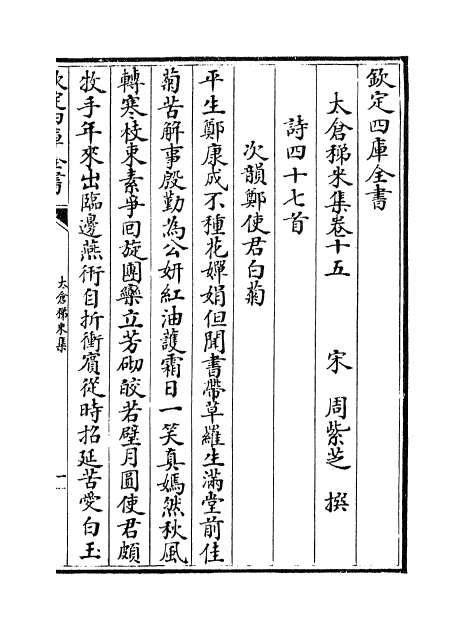 欽定四庫全書
太倉稊米集卷十五
宋 周紫芝 撰
詩四十七首
次韻鄭使君白菊
平生鄭康成不種花嬋娟但聞書帶草羅生滿堂前佳
菊苦解事殷勤為公妍紅油䕶霜日一笑真嫣然秋風
轉寒枝束素爭回旋團欒立芳砌皎若璧月圓使君頗
牧手年來出臨邊燕衎自折衝賔從時招延苦愛白玉
欽定四庫全書
太倉稊米集
一